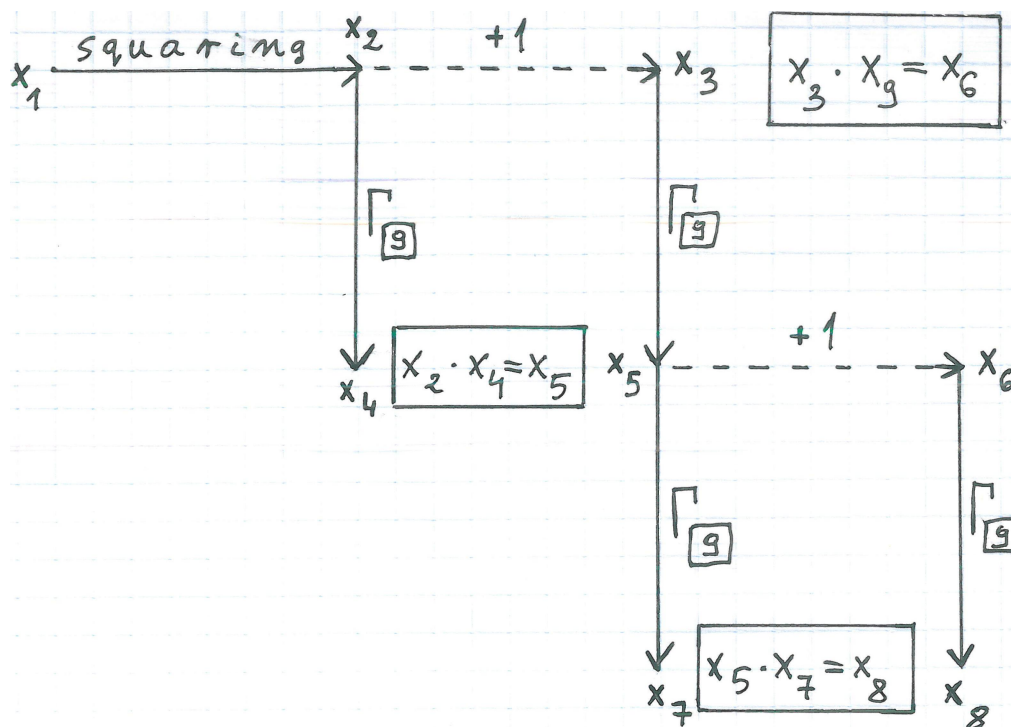 squaring x₂ +1
x₁ x₃ x₃ · x₉ = x₆
Γ₉ Γ₉
+1
x₄ x₂ · x₄ = x₅ x₅ x₆
Γ₉ Γ₉
x₇ x₅ · x₇ = x₈ x₈